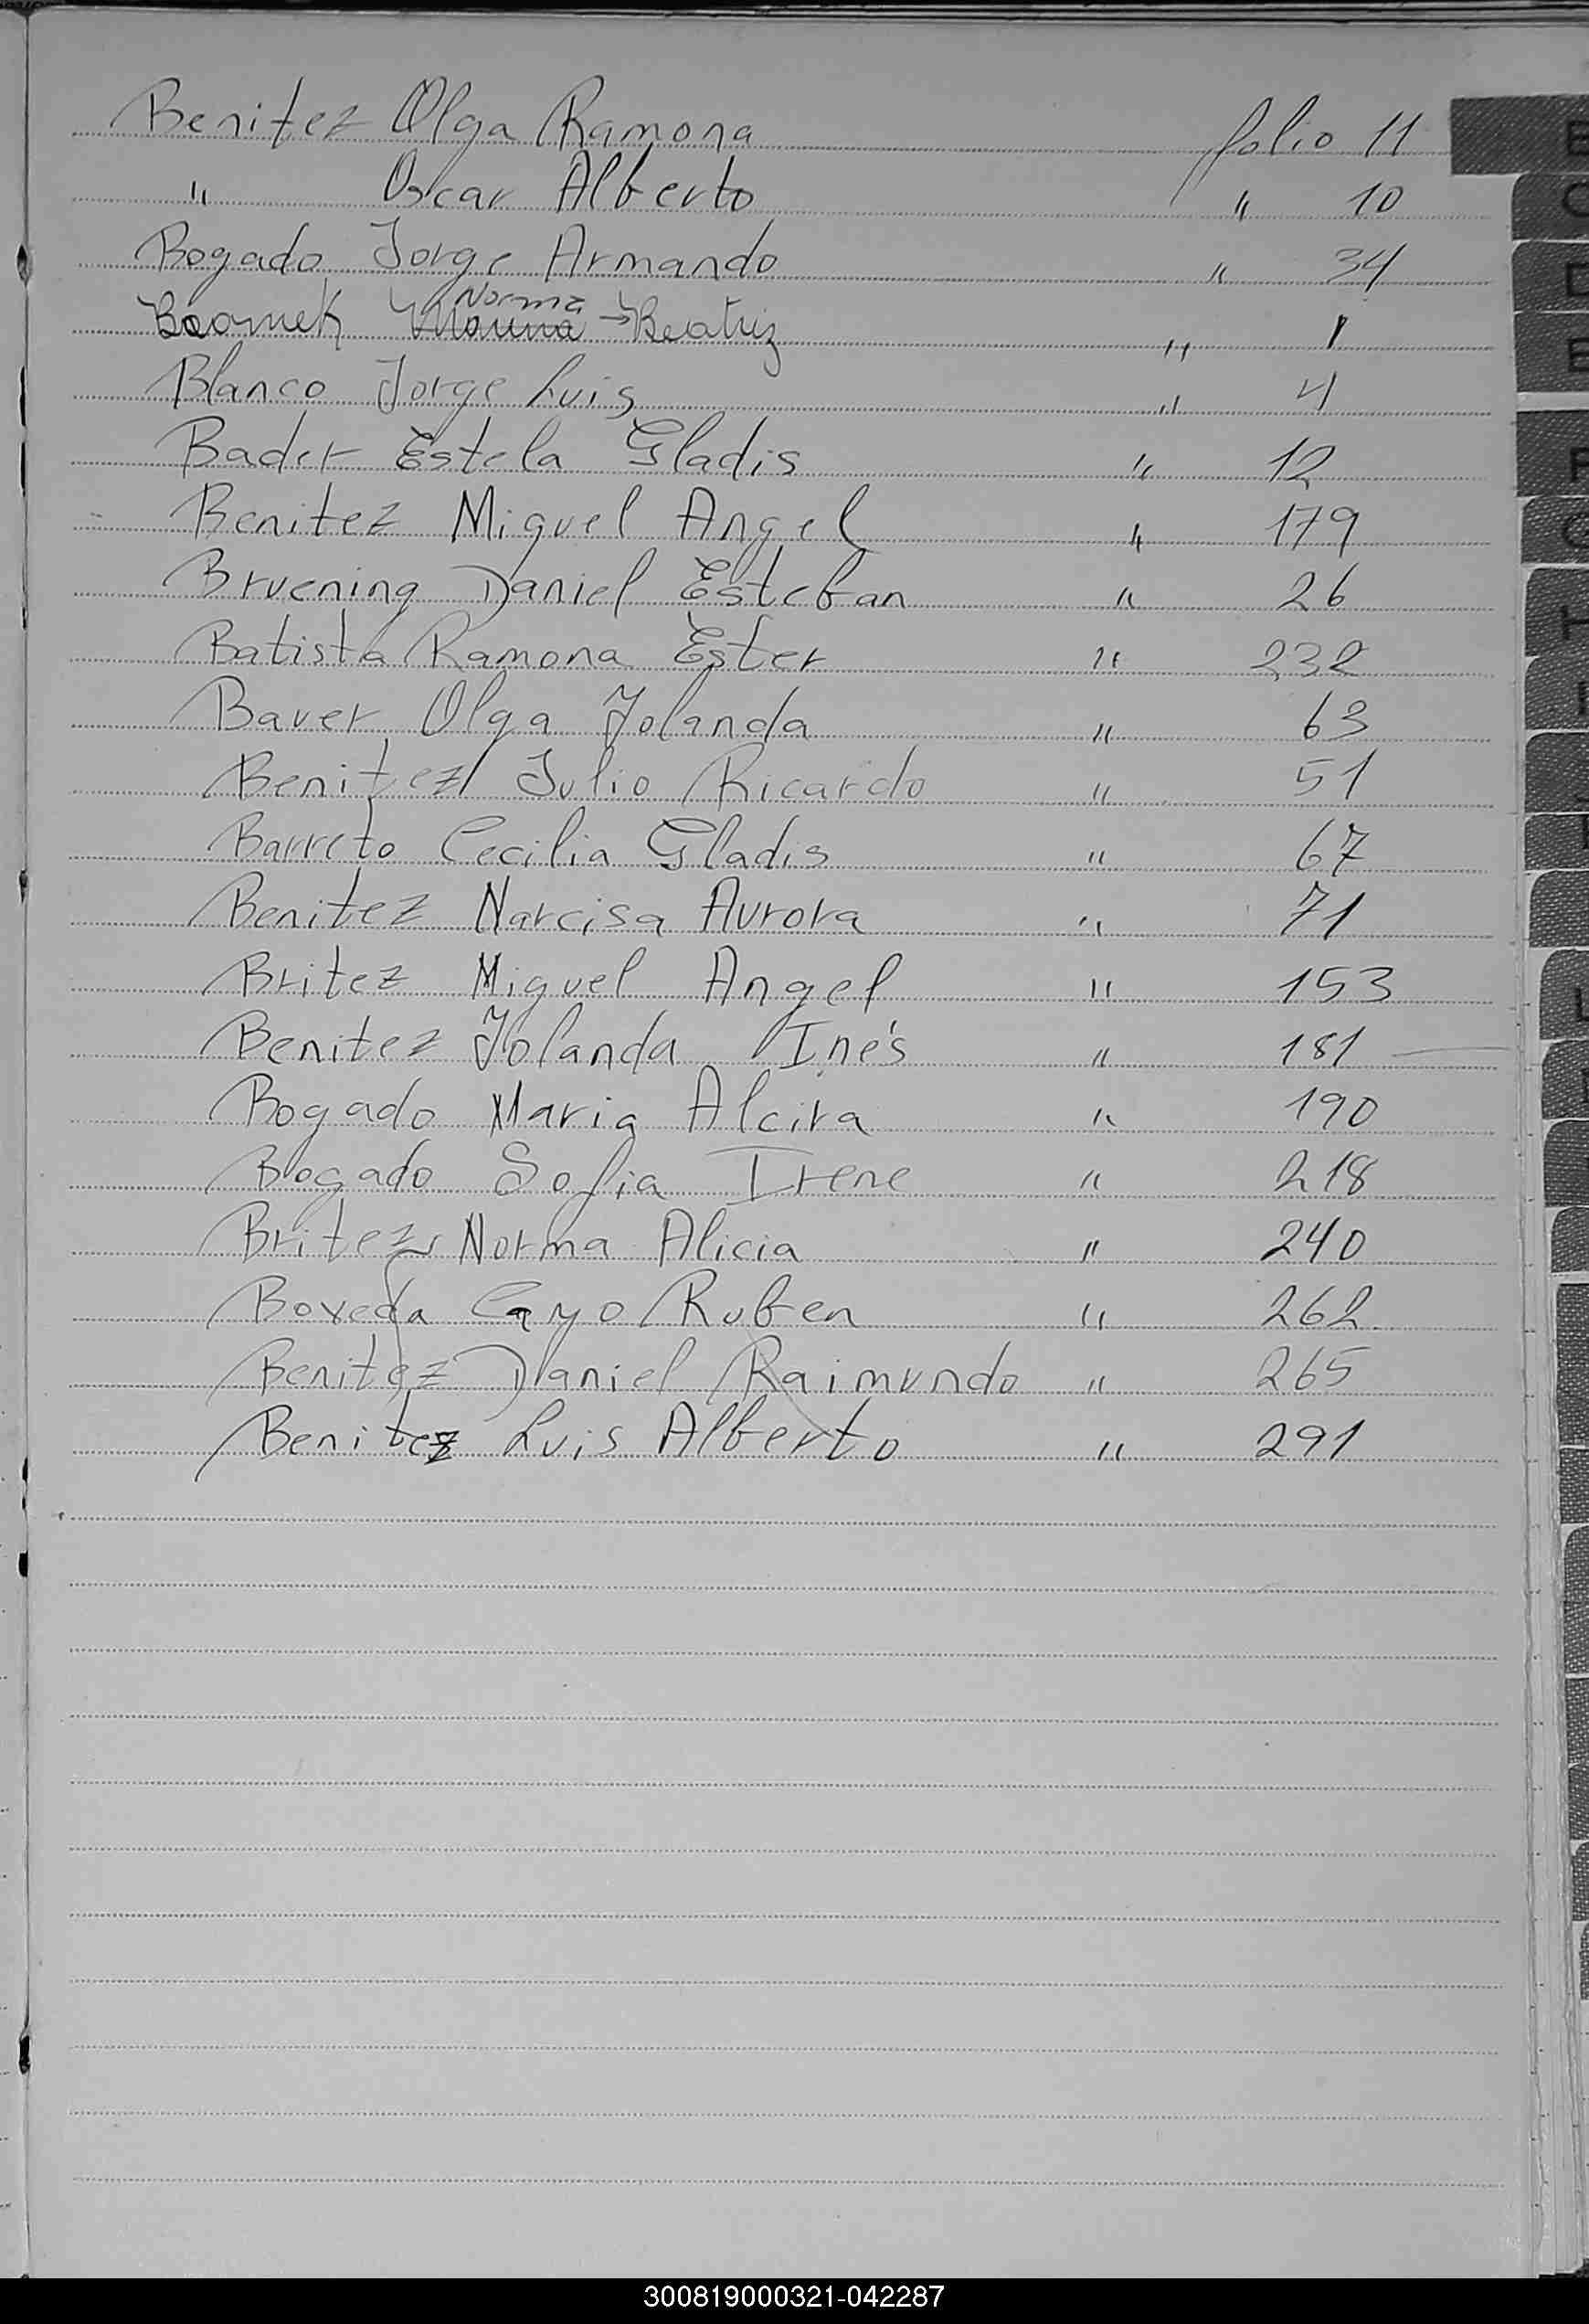 Benitez Olga Ramona folio 11
" Oscar Alberto " 10
Bogado Jorge Armando " 34
Norma
Boomek Beatriz " 1
Blanco Jorge Luis " 4
Bader Estela Gladis " 12
Benitez Miguel Angel " 179
Bruening Daniel Esteban " 26
Batista Ramona Ester " 232
Bauer Olga Yolanda " 63
Benitez Julio Ricardo " 51
Barreto Cecilia Gladis " 67
Benitez Narcisa Aurora " 71
Britez Miguel Angel " 153
Benitez Yolanda Inés " 181
Bogado Maria Alcira " 190
Bogado Sofia Irene " 218
Britez Norma Alicia " 240
Boveda Cayo Ruben " 262
Benitez Daniel Raimundo " 265
Benitez Luis Alberto " 291
300819000321-042287